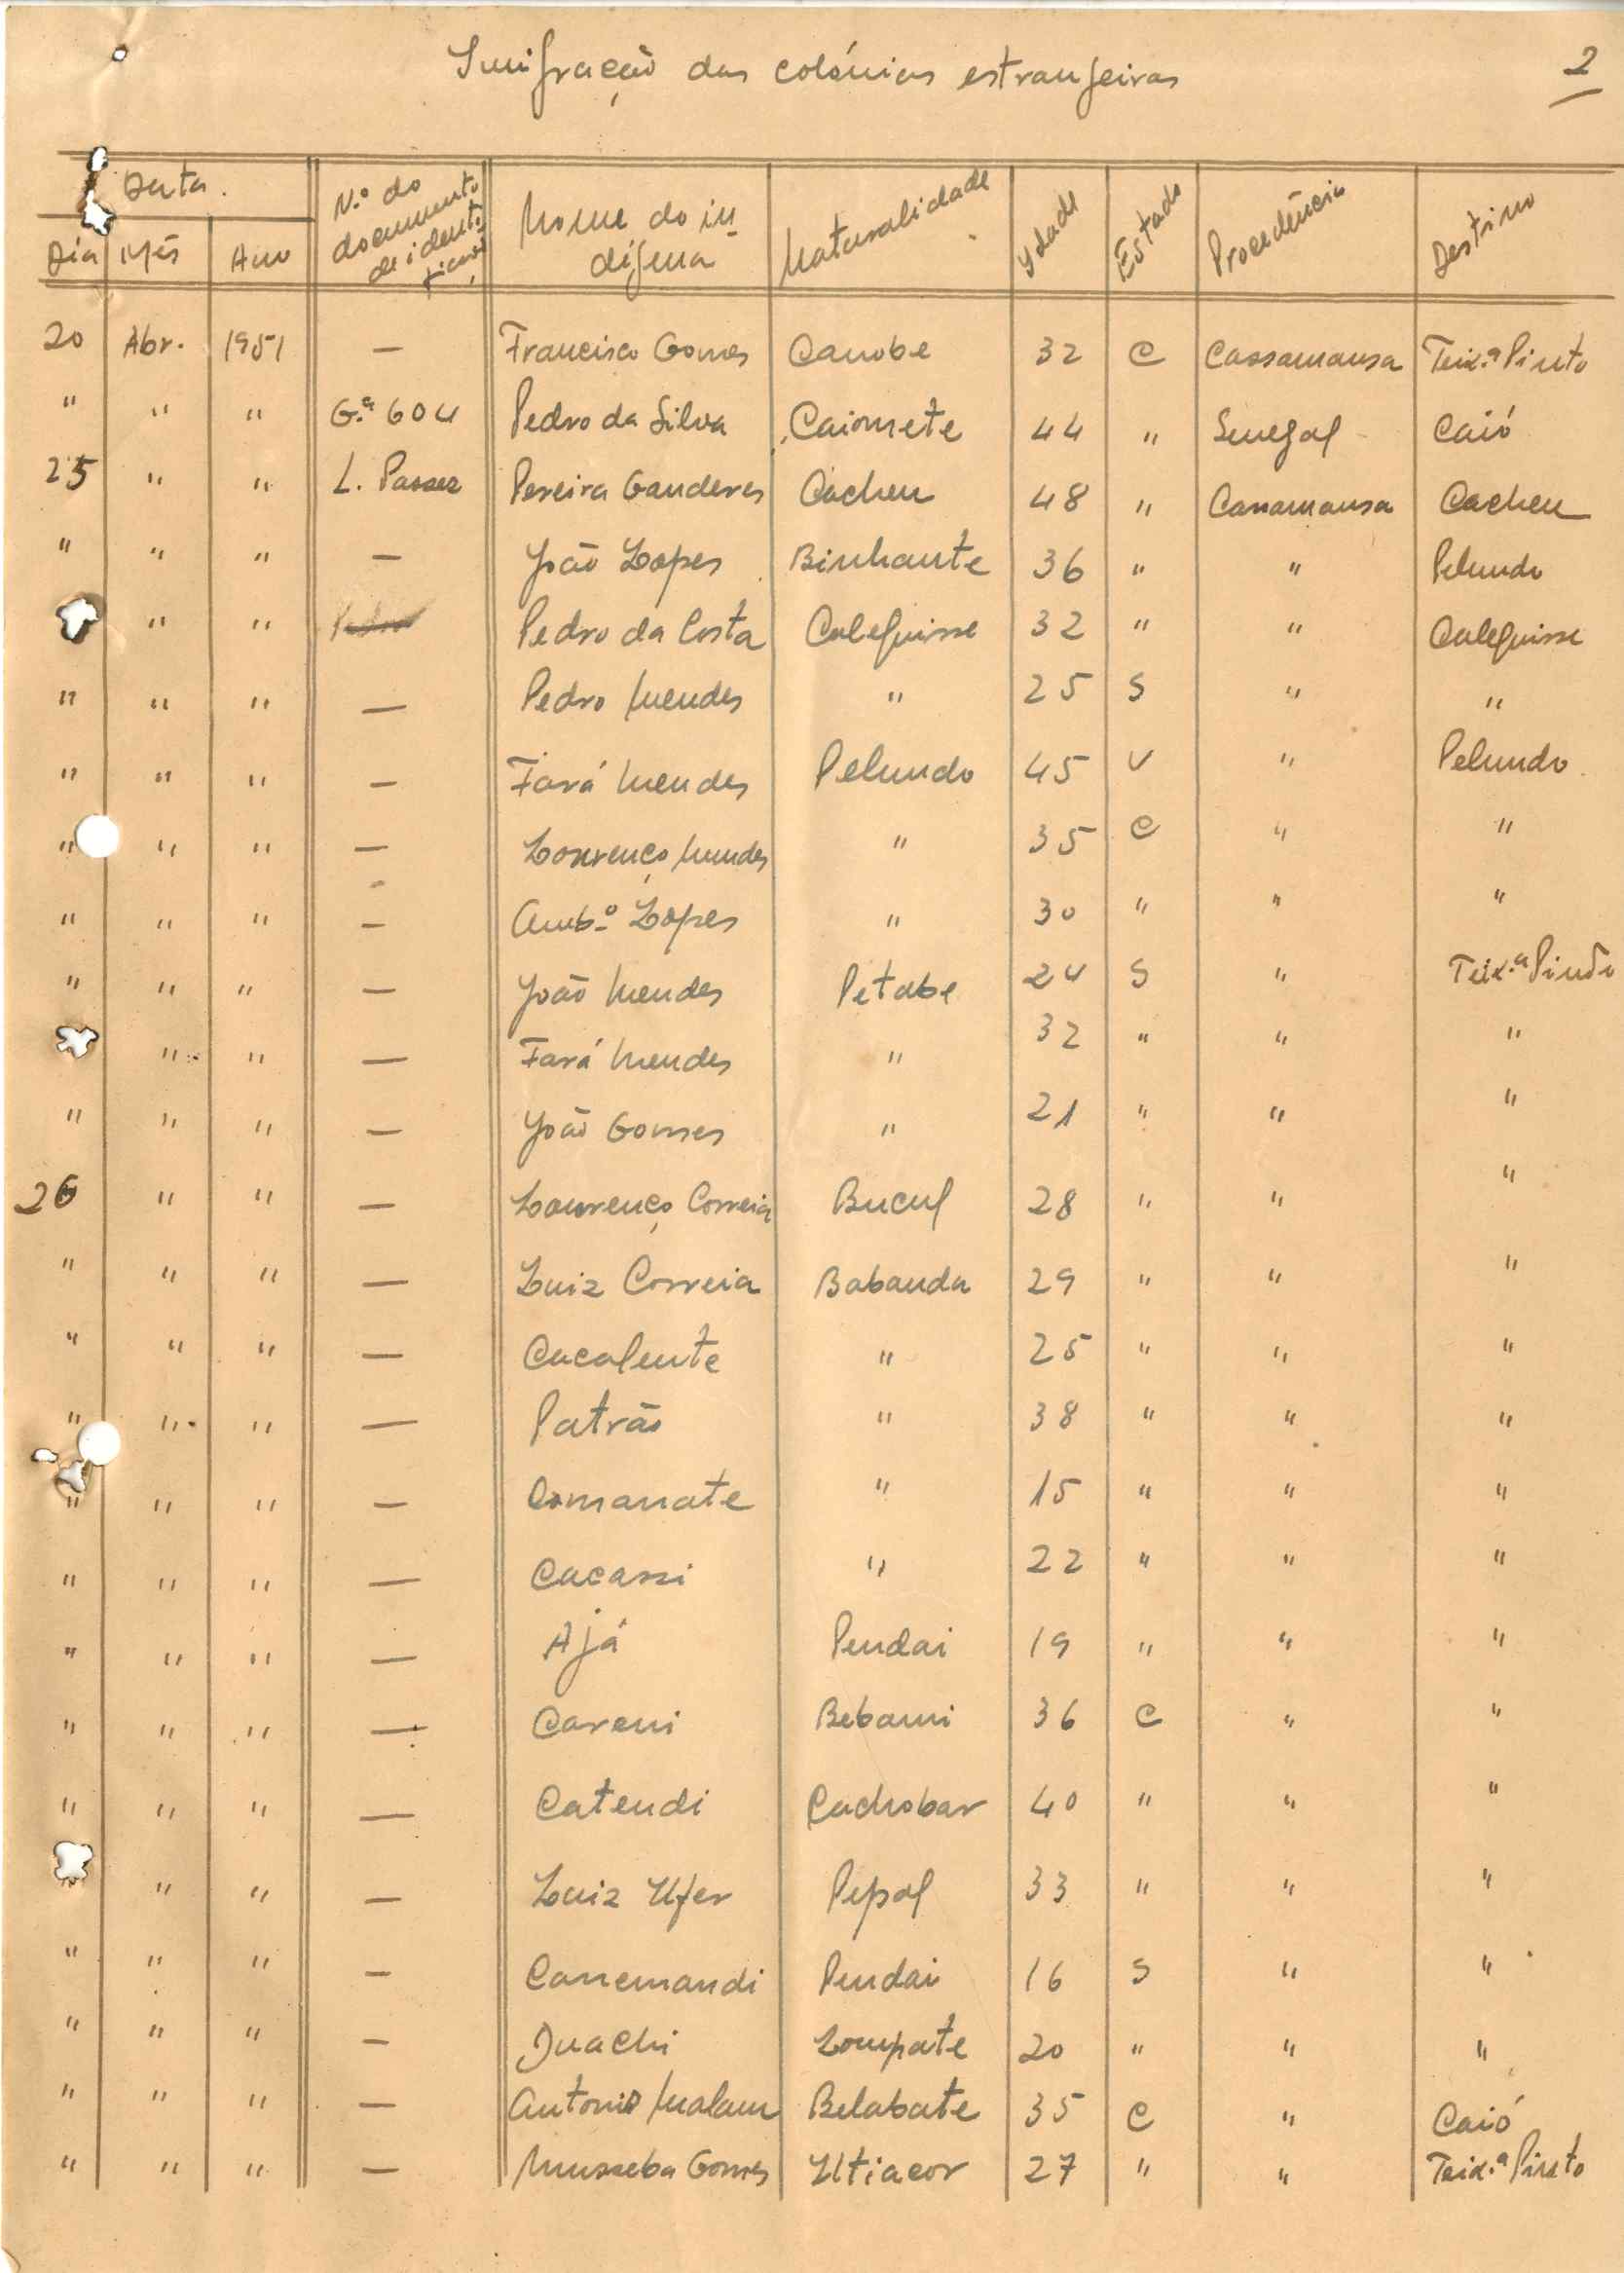 Imigração das colónias estrangeiras 2
Data. N.º do documento de identificação Nome do indígena Naturalidade Idade Estado Procedência Destino
Dia Mês Ano
20 Abr. 1951 — Francisco Gomes Canobe 32 C Cassamansa Teix.ª Pinto
" " " G.ª 604 Pedro da Silva Caiomete 44 " Senegal Caió
25 " " L. Passes Pereira Ganderes Cacheu 48 " Cassamansa Cacheu
" " " — João Lopes Binhante 36 " " Pelundo
" " Pedro Pedro da Costa Calequisse 32 " " Calequisse
" " " — Pedro Mendes " 25 S " "
" " " — Fará Mendes Pelundo 45 V " Pelundo
" " " — Lourenço Mendes " 35 C " "
" " " — Amb.º Lopes " 30 " " "
" " " — João Mendes Petabe 24 S " Teix.ª Pinto
" " — Fará Mendes " 32 " " "
" " " — João Gomes " 21 " " "
26 " " — Lourenço Correia Bucul 28 " " "
" " " — Luiz Correia Babanda 29 " " "
" " " — Cacalente " 25 " " "
" " " — Patrão " 38 " " "
" " " — Comanate " 15 " " "
" " " — Cacassi " 22 " " "
" " " — Ajá Pendai 19 " " "
" " " — Careni Bebami 36 C " "
" " " — Catendi Cachobar 40 " " "
" " " — Luiz Ufer Pepal 33 " " "
" " " — Canemandi Pendai 16 S " "
" " " — Juachi Lompate 20 " " "
" " " — Antonio Malam Belabate 35 C " Caió
" " " — Musseba Gomes Utiacor 27 " " Teix.ª Pinto